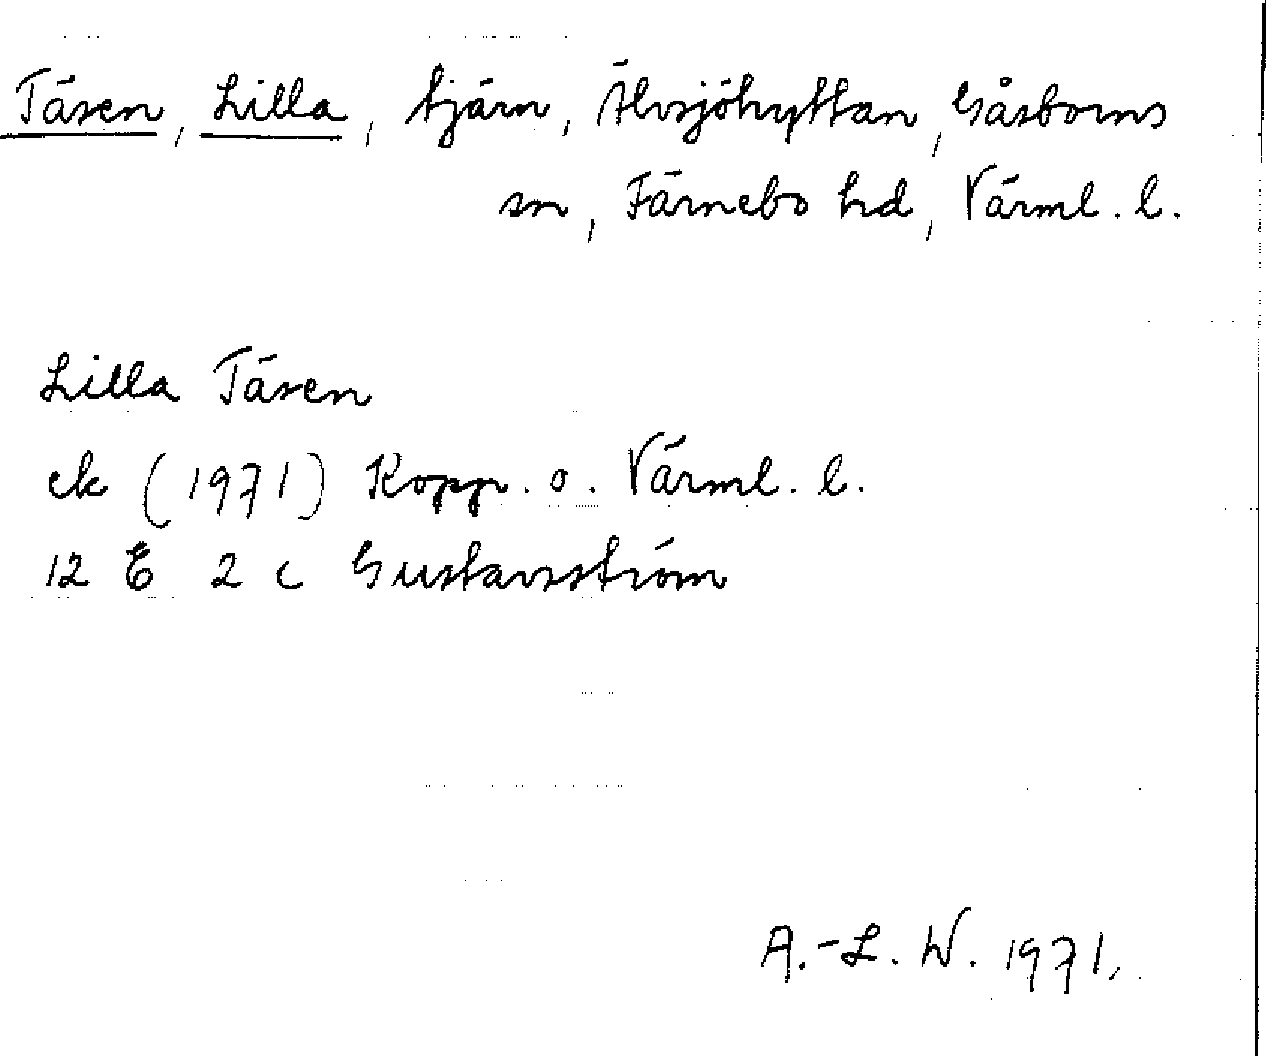 Täsen, Lilla, tjärn, Älvsjöhyttan, Gåsborns
sn, Färnebo hd, Värml. l.
Lilla Täsen
ek (1971) Kopp. o. Värml. l.
12 E 2 c Gustavsström
A.-L. W. 1971.